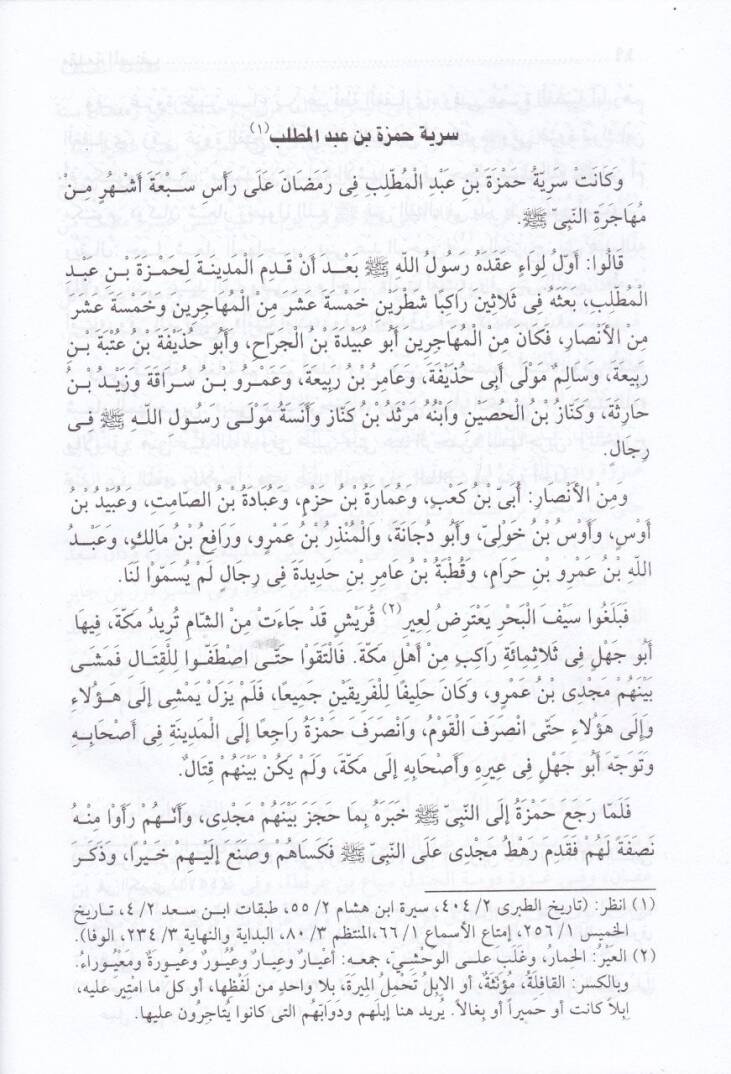 سرية حمزة بن عبد المطلب(١)
وَكَانَت سَريَّةُ حَمْزَةَ بْنِ عَبْدِ الْمُطَّلِبِ فِى رَمَضَانَ عَلَى رَأْسِ سَبعَةَ أَشْهُرٍ مِنْ
مُهَاجَرَةِ النَّبِى ﷺ.
قَالُوا: أَوَّلُ لِوَاءٍ عقَدهُ رَسُولُ اللهِ ﷺ بَعْدَ أَنْ قَدمَ الْمَدِينَةَ لحَمْزَةَ بْنِ عَبْدِ
الْمُطَّلِبِ، بَعثَهُ فِى ثَلاَثِينَ رَاكِبًا شَطْرَينِ خمسةَ عشَرَ مِنَ الْمُهَاجِرينَ وَخَمْسَةَ عشَرَ
مِنَ الأَنْصَارِ، فَكَانَ مِنَ الْمُهَاجِرِينَ أَبو عُبَيْدَةَ بْنُ الْجرَّاحِ، وَأَبو حُذَيْفَةَ بْنُ عُتْبَةَ بنِ
رَبِيعَةَ، وَسَالِمٌ مَوْلَى أَبِى حُذَيْفَةَ، وعَامِرُ بْنُ رَبِيعَةَ، وَعَمْرُو بْنُ سُرَاقَةَ وَزَيْدُ بْنُ
حَارِثَةَ، وكَنَازُ بْنُ الْحُصَيْنِ وَابْنُهُ مَرْثَدُ بْنُ كَنَازِ وأَنَسَةُ مَوْلَى رَسُولِ اللهِ ﷺ فِى
رِجَال.
وَمِنَ الأَنْصَارِ: أبىُّ بْنُ كَعْبٍ، وَعُمَارَةُ بْنُ حَزم، وَعُبَادَةُ بْنُ الصَّامِتِ، وَعُبَيْدُ بْنُ
أَوْس، وَأَوْسُ بْنُ خَوْلِىّ، وَأَبو دُجَانَةَ، وَالْمُنْذِرُ بْنُ عَمرو، وَرَافِعُ بْنُ مَالِك، وَعَبْدُ
اللهِ بْنُ عَمْرِو بْنِ حَرَامٍ، وَقُطْبَةُ بْنُ عامِر بْنِ حَدِيدَةَ فِى رِجَال لَمْ يُسَمّوْا لَنَا.
فبَلَغُوا سَيْفَ الْبَحْرِ يَعْتَرِضُ لِعِيرِ(٢) قُرَيْش قَدْ جاءَتْ مِنَ الشَّامِ تُرِيدُ مَكّةَ، فِيهَا
أَبو جَهْل فِى ثَلاثمِائَة رَاكب مِنْ أَهْلِ مَكّةَ. فَالْتَقَوْا حَتَّى اصْطَفّوا لِلْقِتَالِ فَمَشَى
بَيْنَهُمْ مَجْدِى بْنُ عَمْرو، وَكَانَ حَلِيفًا لِلْفَرِيقَيْنِ جَمِيعًا، فَلَمْ يَزَلْ يَمْشِى إلَى هَؤُلاَءِ
وَإِلَى هَؤُلاَءِ حَتَّى انْصَرَفَ الْقَوْمُ، وَانْصَرَفَ حَمْزَةُ رَاجِعًا إلَى الْمَدِينَةِ فِى أَصْحَابِهِ
وَتَوَجّهَ أَبُو جَهْل فِى عِيرهِ وَأَصْحَابِهِ إلَى مَكّةَ، وَلَمْ يَكُنْ بَيْنَهُمْ قِتَالٌ.
فَلَمَّا رجَعَ حَمْزَةُ إلَى النَّبِىّ ﷺ خَبرَهُ بِمَا حجَزَ بَيْنَهُمْ مَجْدِى، وَأَنَّهُمْ رَأَوْا مِنْهُ
نَصَفَةً لَهُمْ فَقَدِمَ رَهْطُ مَجْدِى عَلَى النَّبِىّ ﷺ فَكَسَاهُمْ وصَنَعَ إِلَيْهِمْ خَيْرًا، وَذَكَرَ
(١) انظر: (تاريخ الطبرى ٢/ ٤٠٤، سيرة ابن هشام ٢/ ٥٥، طبقات ابن سعد ٢/ ٤، تاريخ
الخميس ١/ ٢٥٦، إمتاع الأسماع ١/ ٦٦، المنتظم ٣/ ٨٠، البداية والنهاية ٣/ ٢٣٤، الوفا).
(٢) العَيْرُ: الحِمارُ، وغَلَبَ على الوحْشِيّ، جمعه: أعْيارٌ وعِيارٌ وعُيُورٌ وعُيورةٌ ومَعْيُوراءُ:
وبالكسر: القافِلَةُ، مُؤَنَّثَةٌ، أو الإبِلُ تَحْمِلُ المِيرَةَ، بلا واحدٍ من لَفْظِها، أو كل ما امْتِير عليه،
إبِلاً كانت أو حَميراً أو بِغالاً. يُريد هنا إبِلَهم ودَوابَهُم التى كانوا يُتاجِرُون عليها.